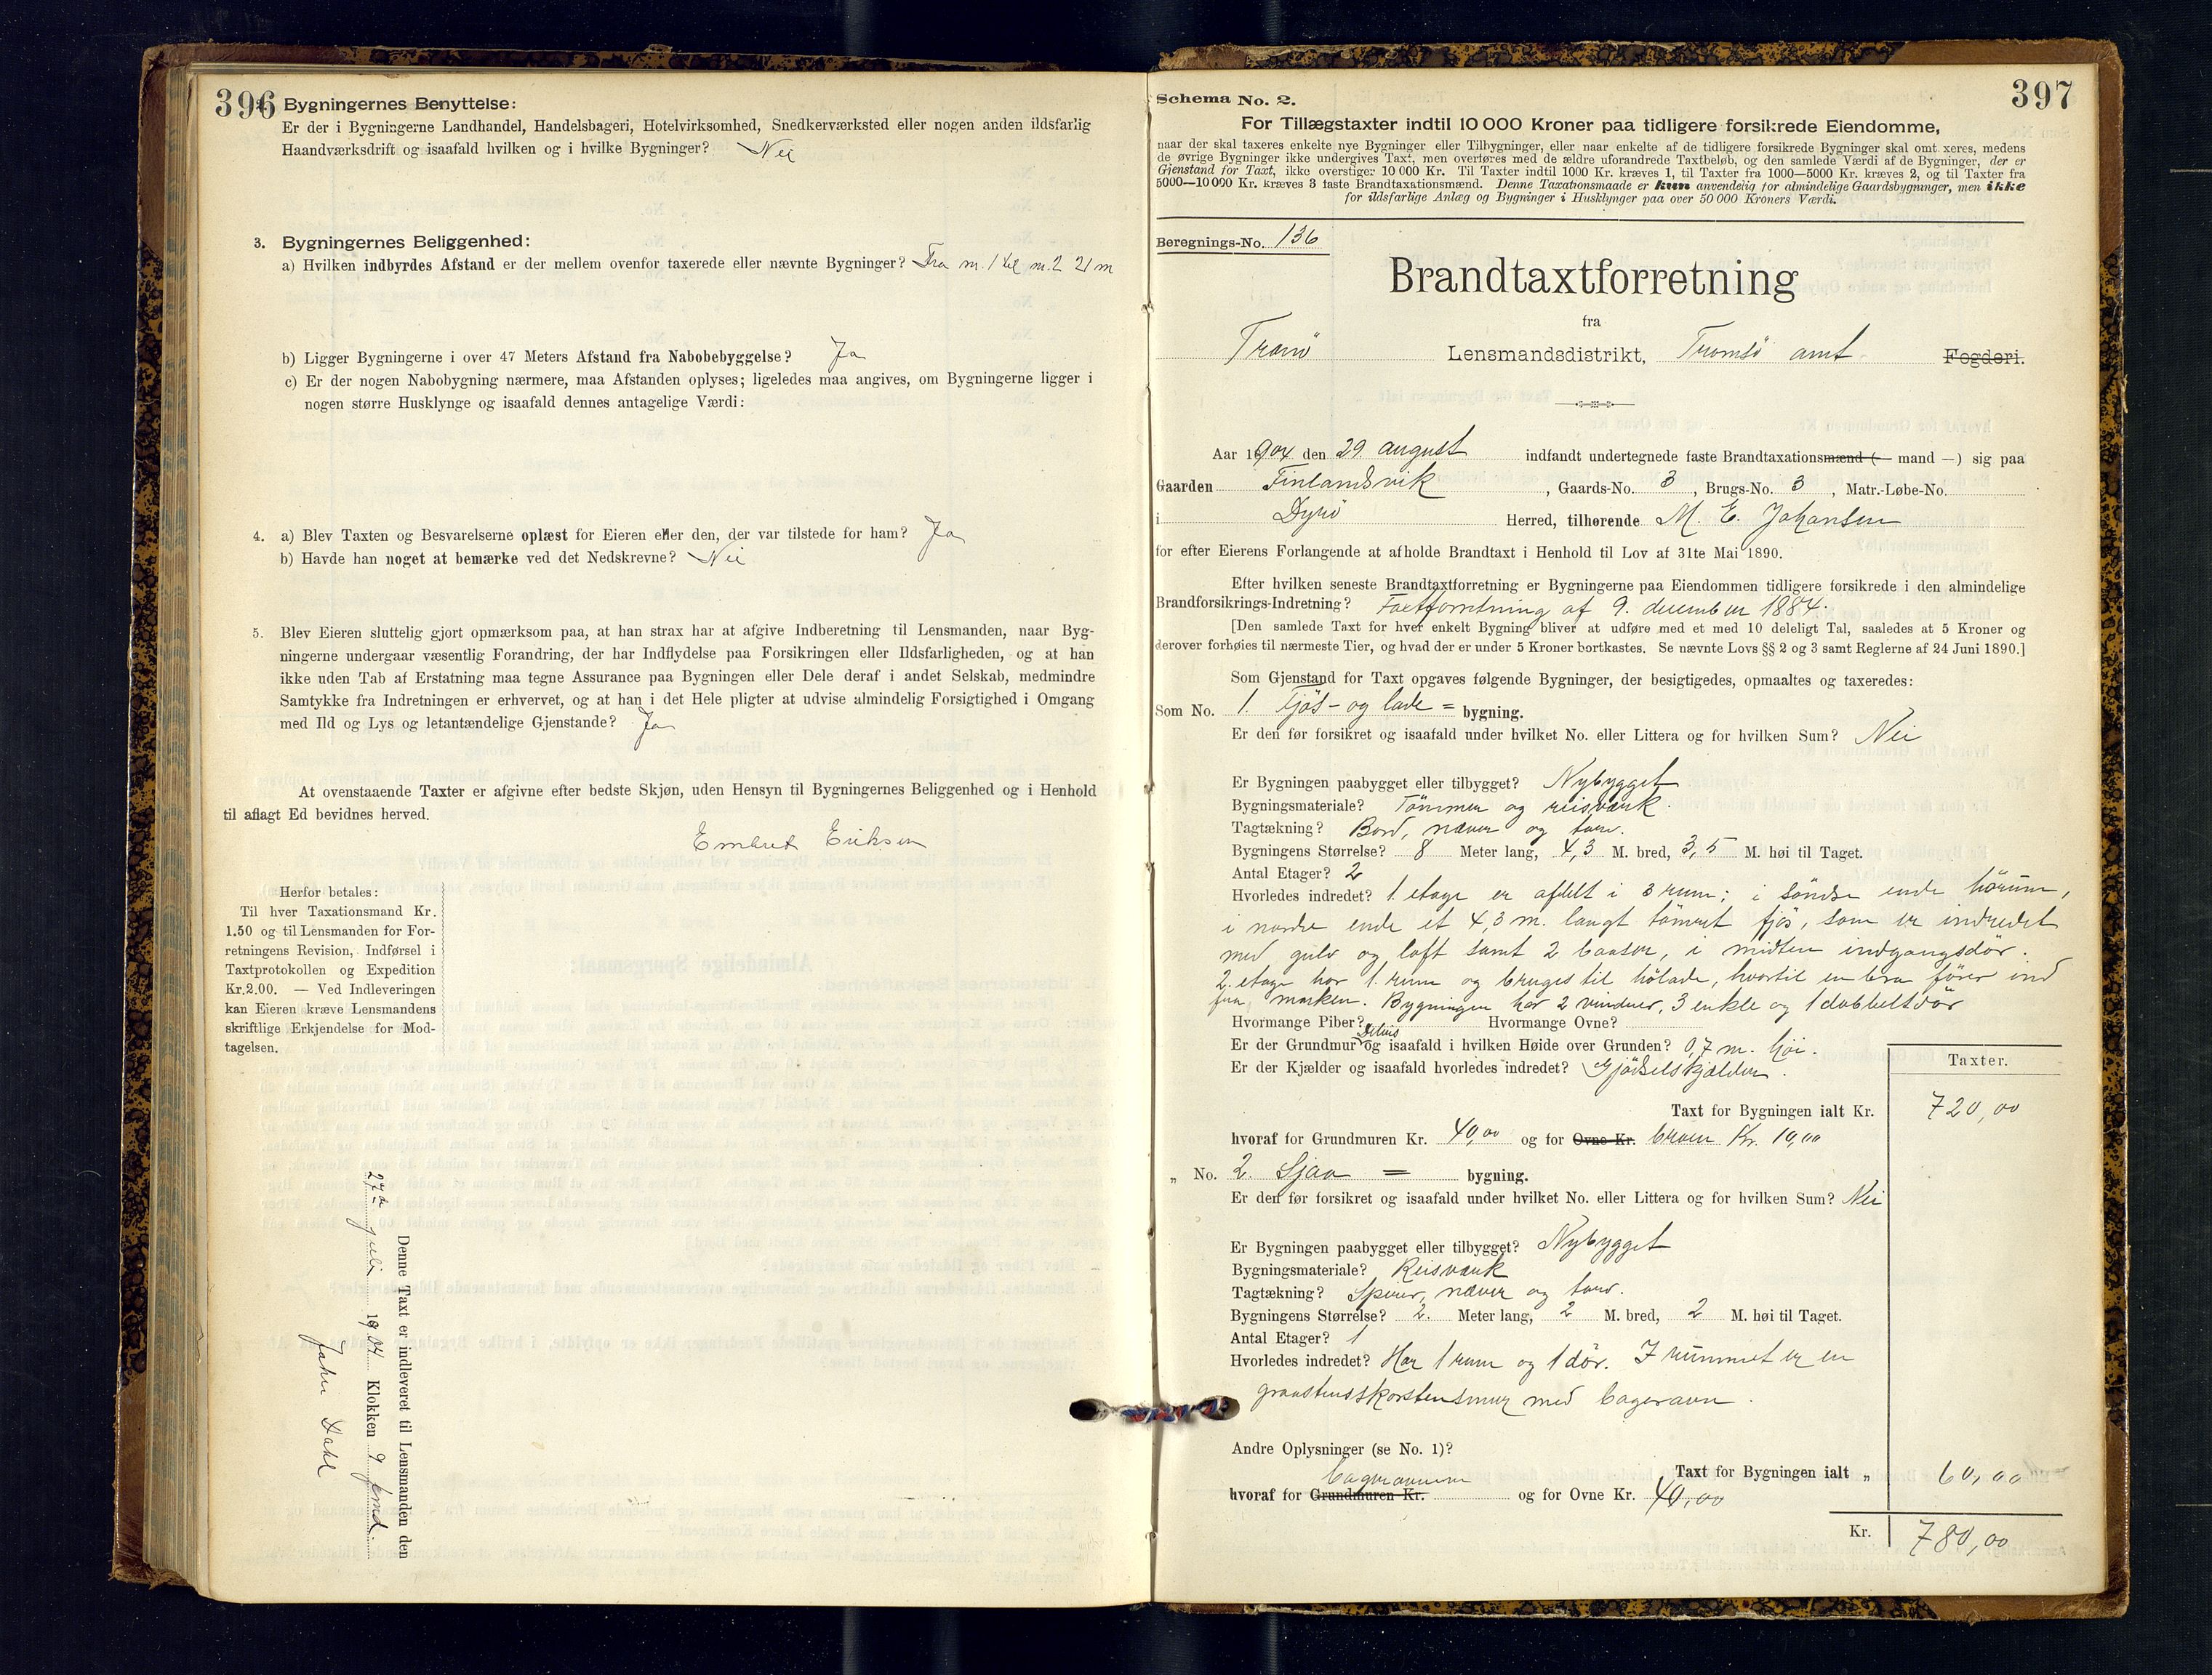 396
Bygningernes Benyttelse:
Er der i Bygningerne Landhandel, Handelsbageri, Hotelvirksomhed, Snedkerværksted eller nogen anden ildsfarlig
Haandværksdrift og isaafald hvilken og i hvilke Bygninger? Nei
3. Bygningernes Beliggenhed:
a) Hvilken indbyrdes Afstand er der mellem ovenfor taxerede eller nævnte Bygninger? Fra no. 1 til no. 2 21 m
b) Ligger Bygningerne i over 47 Meters Afstand fra Nabobebyggelse? Ja
c) Er der nogen Nabobygning nærmere, maa Afstanden oplyses; ligeledes maa angives, om Bygningerne ligger i
nogen større Husklynge og isaafald dennes antagelige Værdi:
4. a) Blev Taxten og Besvarelserne oplæst for Eieren eller den, der var tilstede for ham? Ja
b) Havde han noget at bemærke ved det Nedskrevne? Nei
5. Blev Eieren sluttelig gjort opmærksom paa, at han strax har at afgive Indberetning til Lensmanden, naar Byg-
ningerne undergaar væsentlig Forandring, der har Indflydelse paa Forsikringen eller Ildsfarligheden, og at han
ikke uden Tab af Erstatning maa tegne Assurance paa Bygningen eller Dele deraf i andet Selskab, medmindre
Samtykke fra Indretningen er erhvervet, og at han i det Hele pligter at udvise almindelig Forsigtighed i Omgang
med Ild og Lys og letantændelige Gjenstande? Ja
At ovenstaaende Taxter er afgivne efter bedste Skjøn, uden Hensyn til Bygningernes Beliggenhed og i Henhold
til aflagt Ed bevidnes herved.
Embret Eriksen
Herfor betales:
Til hver Taxationsmand Kr.
1.50 og til Lensmanden for For-
retningens Revision, Indførsel i
Taxtprotokollen og Expedition
Kr.2.00. — Ved Indleveringen
kan Eieren kræve Lensmandens
skriftlige Erkjendelse for Mod-
tagelsen.
Denne Taxt er indleveret til Lensmanden den
27de juli 1904 Klokken 9 fmd.
Johs Dahl
397
Schema No. 2.
For Tillægstaxter indtil 10 000 Kroner paa tidligere forsikrede Eiendomme,
naar der skal taxeres enkelte nye Bygninger eller Tilbygninger, eller naar enkelte af de tidligere forsikrede Bygninger skal omtaxeres, medens
de øvrige Bygninger ikke undergives Taxt, men overføres med de ældre uforandrede Taxtbeløb, og den samlede Værdi af de Bygninger, der er
Gjenstand for Taxt, ikke overstiger 10 000 Kr. Til Taxter indtil 1000 Kr. kræves 1, til Taxter fra 1000—5000 Kr. kræves 2, og til Taxter fra
5000—10 000 Kr. kræves 3 faste Brandtaxationsmænd. Denne Taxationsmaade er kun anvendelig for almindelige Gaardsbygninger, men ikke
for ildsfarlige Anlæg og Bygninger i Husklynger paa over 50 000 Kroners Værdi.
Beregnings-No. 136
Brandtaxtforretning
fra
Tranö Lensmandsdistrikt, Tromsö amt Fogderi.
Aar 1904 den 29. august indfandt undertegnede faste Brandtaxationsmænd (— mand —) sig paa
Gaarden Finlandsvik, Gaards-No. 3, Brugs-No. 3, Matr.-Løbe-No.
i Dyrö Herred, tilhørende M. E. Johansen
for efter Eierens Forlangende at afholde Brandtaxt i Henhold til Lov af 31te Mai 1890.
Efter hvilken seneste Brandtaxtforretning er Bygningerne paa Eiendommen tidligere forsikrede i den almindelige
Brandforsikrings-Indretning? Taxtforretning af 9. december 1884.
[Den samlede Taxt for hver enkelt Bygning bliver at udføre med et med 10 deleligt Tal, saaledes at 5 Kroner og
derover forhøies til nærmeste Tier, og hvad der er under 5 Kroner bortkastes. Se nævnte Lovs §§ 2 og 3 samt Reglerne af 24 Juni 1890.]
Som Gjenstand for Taxt opgaves følgende Bygninger, der besigtigedes, opmaaltes og taxeredes:
Som No. 1. Fjös- og lade = bygning.
Er den før forsikret og isaafald under hvilket No. eller Littera og for hvilken Sum? Nei
Er Bygningen paabygget eller tilbygget? Nybygget
Bygningsmateriale? Tömmer og reisværk.
Tagtækning? Bord, næver og torv.
Bygningens Størrelse? 8 Meter lang, 4,3 M. bred, 3,5 M. høi til Taget.
Antal Etager? 2
Hvorledes indredet? 1 etage er afdelt i 3 rum; i söndre ende hörum,
i nordre ende et 4,3 m. langt tömret fjös, som er indredet
med gulv og loft samt 2 baaser, i midten indgangsdör.
2. etage har 1 rum og bruges til hölade, hvortil en bro förer ind
fra marken. Bygningen har 2 vinduer, 3 enkle og 1 dobbeltdör
Hvormange Piber? Hvormange Ovne?
Er der Grundmur delvis og isaafald i hvilken Høide over Grunden? 0,7 m. höi.
Er der Kjælder og isaafald hvorledes indredet? Gjödselskjælder.
Taxter.
Taxt for Bygningen ialt Kr. 720,00
hvoraf for Grundmuren Kr. 40,00 og for Ovne Kr. broen Kr. 10,00
„ No. 2. Sjaa = bygning.
Er den før forsikret og isaafald under hvilket No. eller Littera og for hvilken Sum? Nei
Er Bygningen paabygget eller tilbygget? Nybygget
Bygningsmateriale? Reisværk
Tagtækning? Spirer, næver og torv.
Bygningens Størrelse? 2. Meter lang, 2 M. bred, 2 M. høi til Taget.
Antal Etager? 1
Hvorledes indredet? Har 1 rum og 1 dör. I rummet er en
graastensskorstensmur med bagerovn.
Andre Oplysninger (se No. 1)?
Taxt for Bygningen ialt „ 60,00
hvoraf for Grundmuren Kr. bagerovnen og for Ovne Kr. 40,00
Kr. 780,00